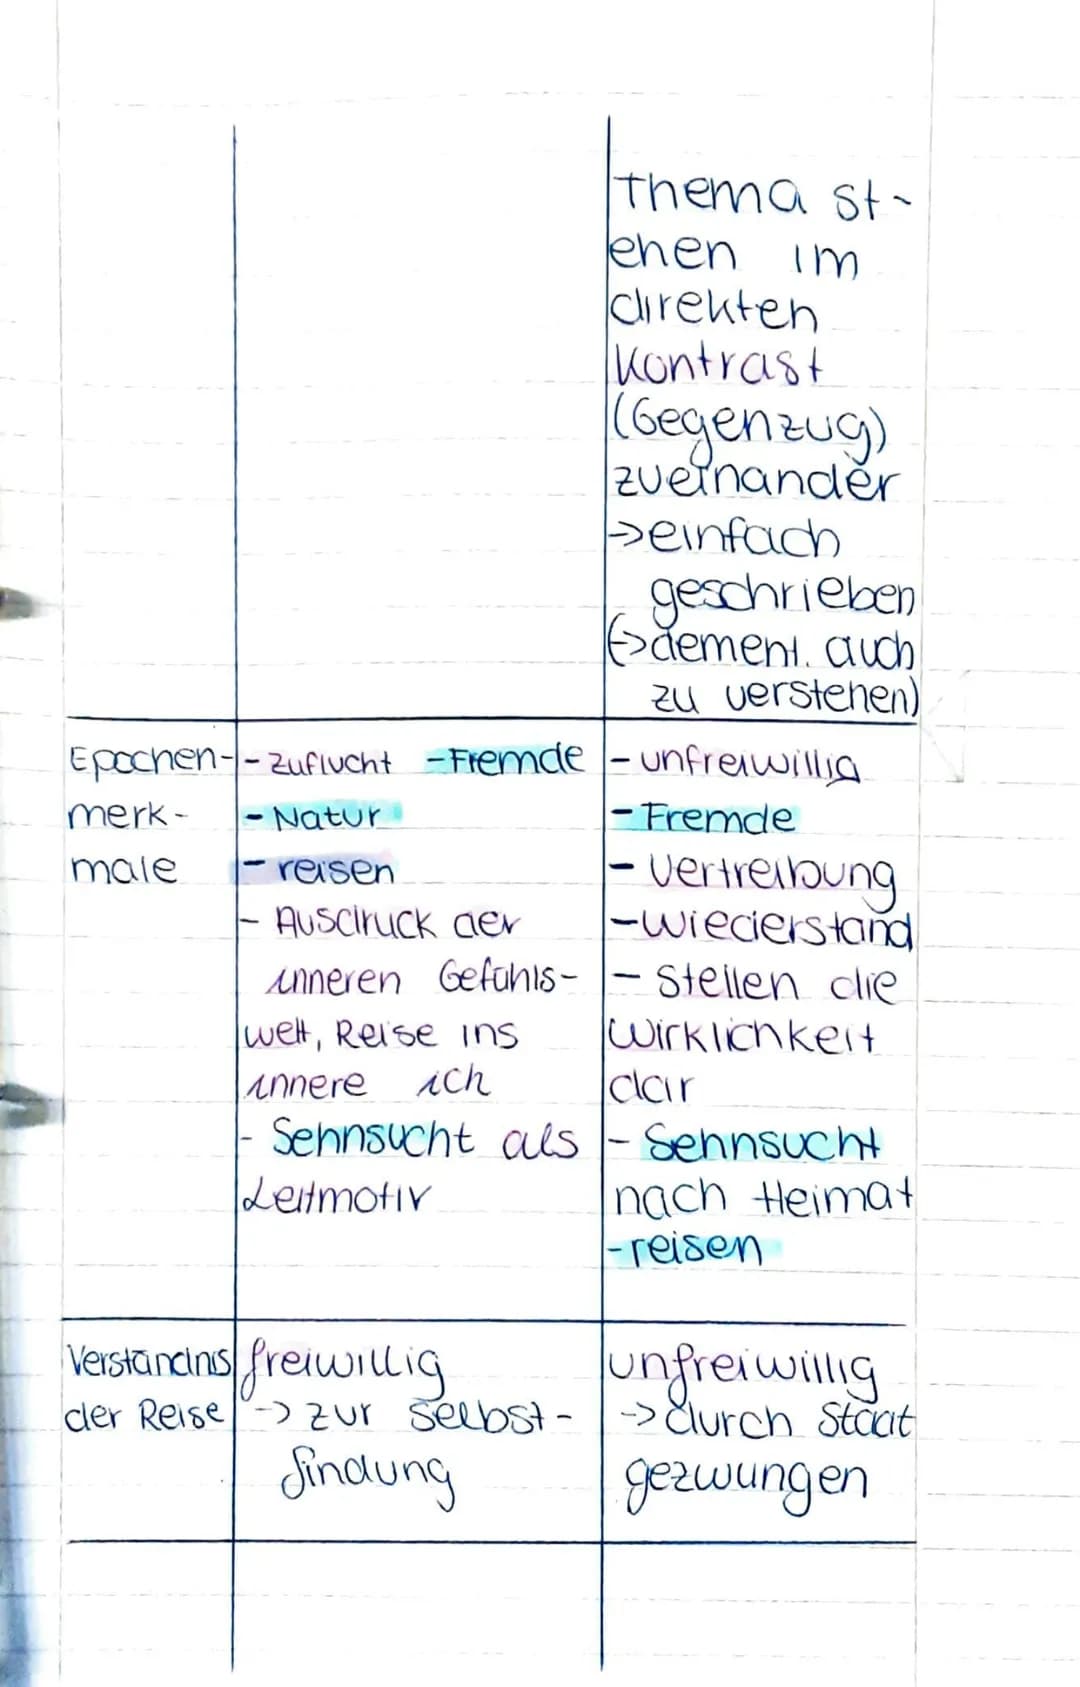 Thema st-
ehen im
direkten
Kontrast
(Gegenzug)
zueinander
→einfach
geschrieben
(→dement. auch
zu verstehen)
Epochen-
merk-
male
- Zuflucht -Fremde
- Natur
- reisen
- Ausdruck der
inneren Gefühls-
welt, Reise ins
innere ich
- Sehnsucht als
Leitmotiv
- unfreiwillig
- Fremde
- Vertreibung
-Wiederstand
- Stellen die
Wirklichkeit
dar
- Sehnsucht
nach Heimat
-reisen
Verständnis
der Reise
freiwillig
-> zur Selbst-
findung
unfreiwillig
-> durch Staat
gezwungen